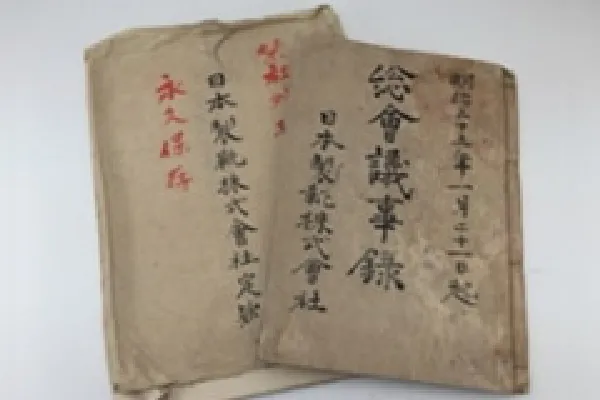 明治三十五年一月二十一日起
総會議事録
日本製靴株式會社
日本製靴株式會社定款
永久保存